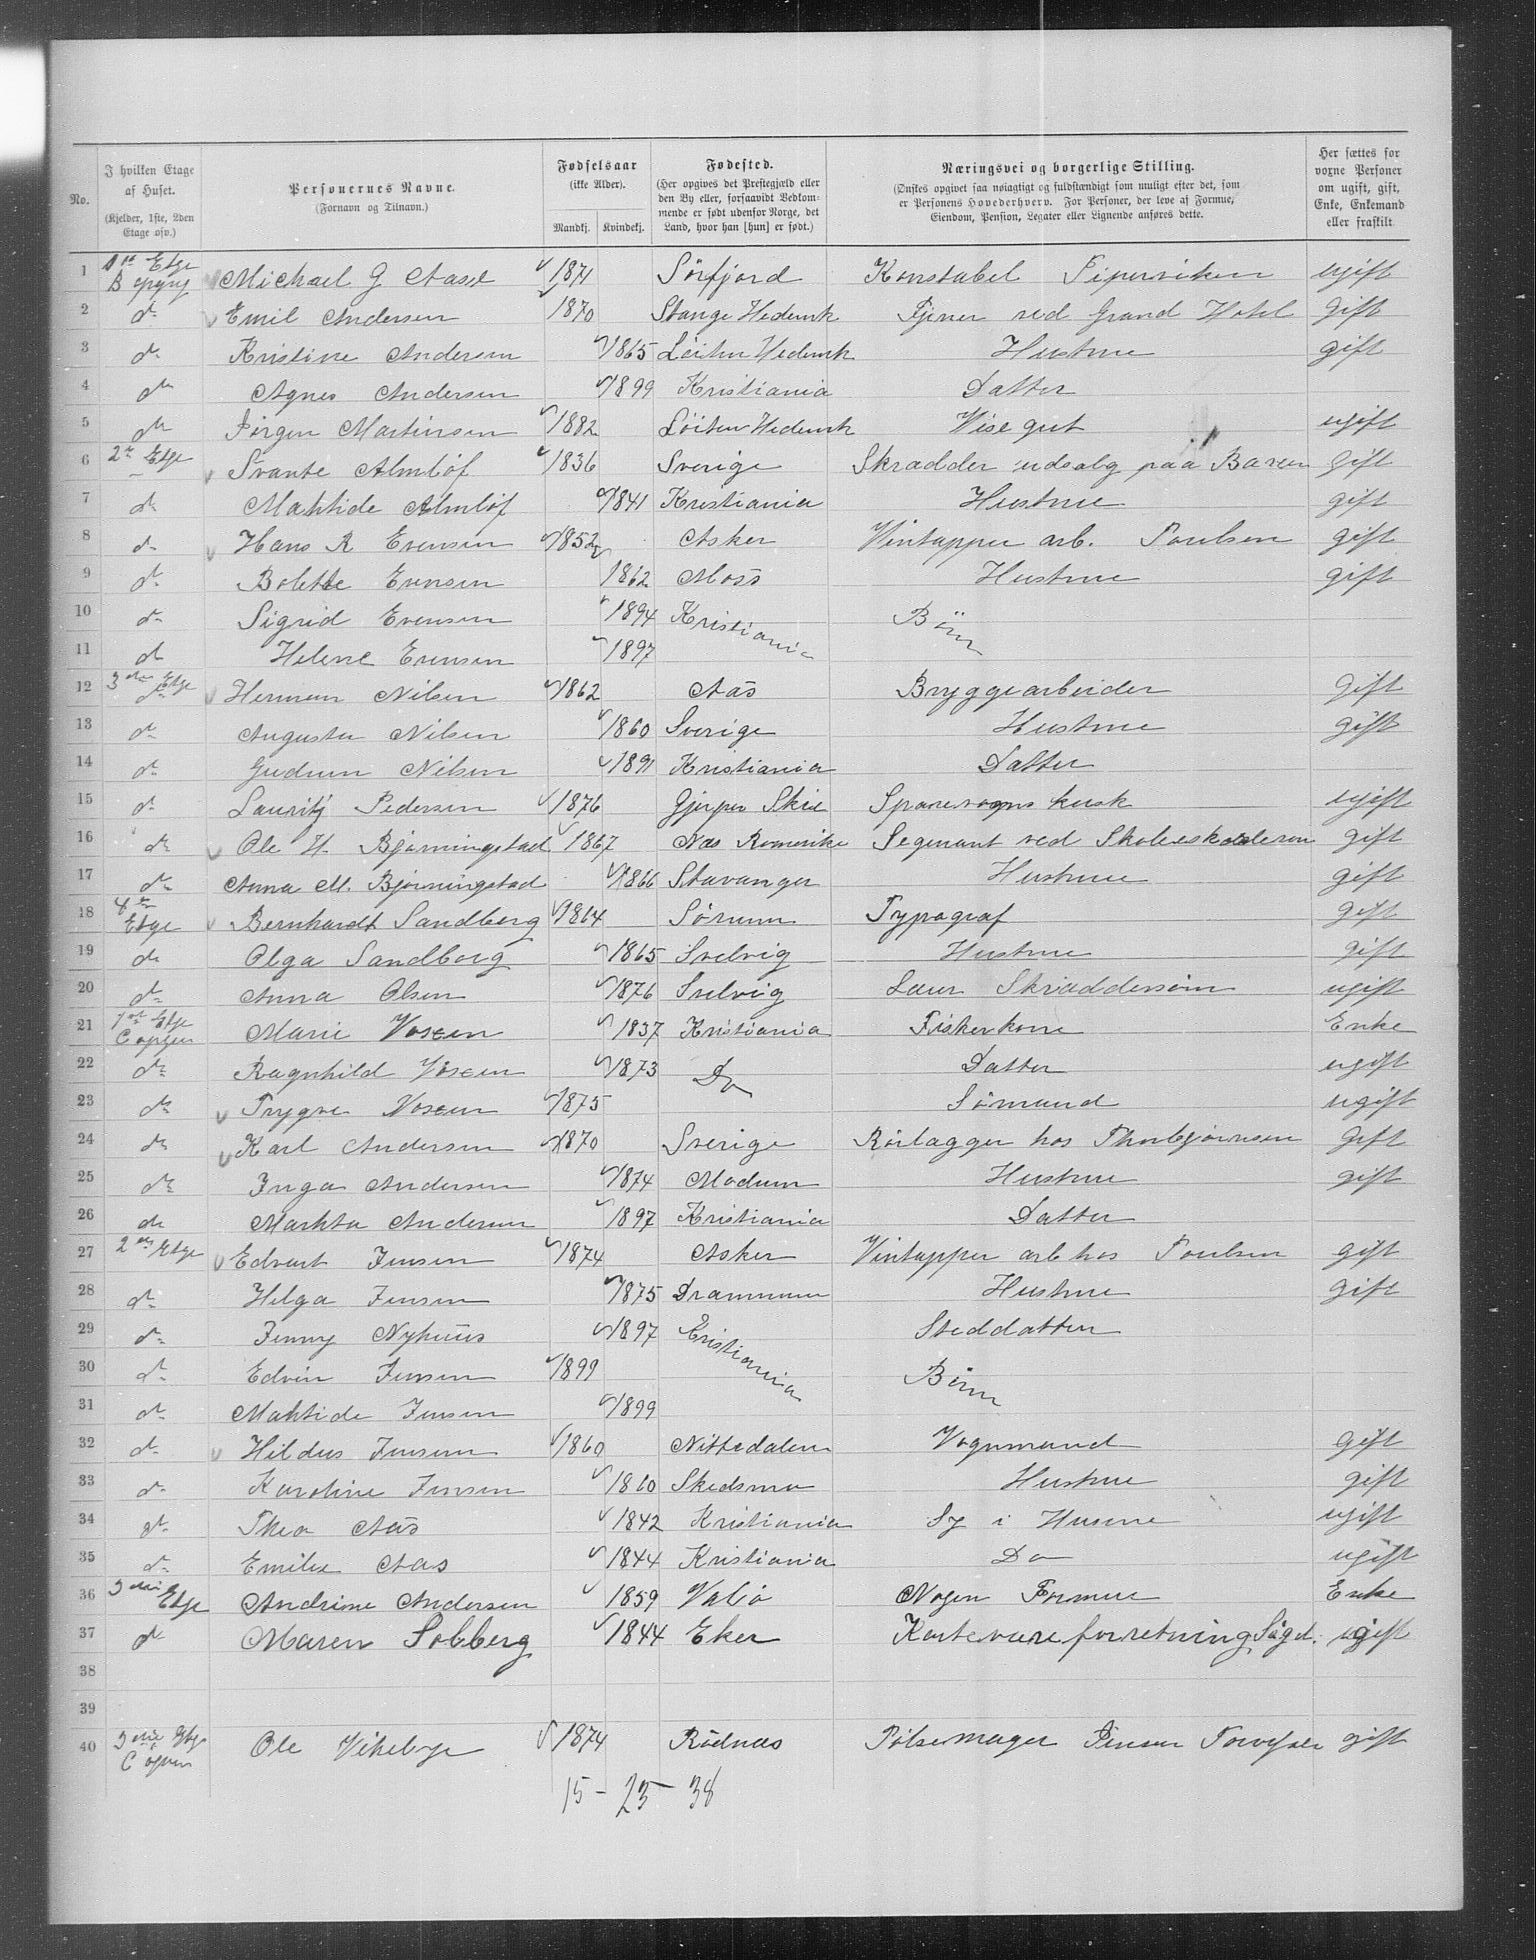 No.
I hvilken Etage af Huset.
(Kjelder, 1ste, 2den Etage osv.)
Personernes Navne.
(Fornavn og Tilnavn.)
Fødselsaar
(ikke Alder).
Mandkj. Kvindekj.
Fødested.
(Her opgives det Prestegjæld eller den By eller, forsaavidt Vedkommende er født udenfor Norge, det Land, hvor han [hun] er født.)
Næringsvei og borgerlige Stilling.
(Ønskes opgivet saa nøiagtigt og fuldstændigt som muligt efter det, som er Personens Hovederhverv. For Personer, der leve af Formue, Eiendom, Pension, Legater eller Lignende anføres dette.
Her sættes for vorne Personer om ugift, gift, Enke, Enkemand eller fraskilt.
1 Etge B Michael G Aase 1871 Sörfjord Konstabel Pipervviken ugift
2 do Emil Andersen 1870 Stange Hedemk Tjener ved Grand Hotel gift
3 do Kristine Andersen 1865 Löiten Hedemk Hustrue gift
4 do Agnes Andersen 1899 Kristiania Datter
5 do Jörgen Martinsen 1882 Löiten Hedemk Visegut ugift
6 2n Etge Svante Almlöf 1836 Sverige Skrædder udsalg paa Basaren gift
7 do Mathilde Almlöf 1841 Kristiania Hustrue gift
8 do Hans R Evensen 1852 Asker Vintapper arb. Poulsen gift
9 do Bolette Evensen 1862 Moss Hustrue gift
10 do Sigrid Evensen 1894 Kristiania Börn
11 do Helene Evensen 1897
12 3die Etge Herman Nilsen 1862 Aas Bryggearbeider gift
13 do Augusta Nilsen 1860 Sverige Hustrue gift
14 do Gudrun Nilsen 1891 Kristiania Datter
15 do Lauritz Pedersen 1876 Gjerpen Skie Sporevogns kusk ugift
16 do Ole H. Bjørningstad 1867 Næs Romerike Segensant ved gift
17 do Anna M. Bjørningstad 1866 Stavanger Hustrue gift
18 4de Etge Bernhardt Sandberg 1864 Sørum Typograf gift
19 do Olga Sandberg 1865 Svelvig Hustrue gift
20 do Anna Olsen 1876 Svelvig Lærer Skræddersöm ugift
21 1ste Etge C opgen Marie Vosen 1837 Kristiania Fiskerkone Enke
22 do Ragnhild Vosen 1873 Do Datter ugift
23 do Trygve Vosen 1875 Sömand ugift
24 do Karl Andersen 1870 Sverige Rörlægger hos Thorbjörnsen gift
25 do Inga Andersen 1874 Modum Hustrue gift
26 do Martha Andersen 1897 Kristiania Datter
27 2den Etge Edvart Jensen 1874 Asker Vintapper arb hos Poulsen gift
28 do Helga Jensen 1875 Drammen Hustrue gift
29 do Jenny Nyhuus 1897 Kristiania Steddatter
30 do Edvin Jensen 1899 Börn
31 do Mahtide Jensen 1899
32 do Hildus Jensen 1860 Nittedalen Vognmand gift
33 do Karoline Jensen 1860 Skedsmo Hustrue gift
34 do Thea Aas 1842 Kristiania Sy i Husene ugift
35 do Emilie Aas 1844 Kristiania Do ugift
36 3die Etge Andrine Andersen 1859 Valö Nogen Formue Enke
37 do Maren Solberg 1844 Eker Kortevareforretning, Sögd. ugift
38
39
40 3die Etge C opgen Ole Vikebye 1874 Rödnæs Pölsemager Jensen Torvgaden gift
15 - 23 - 38